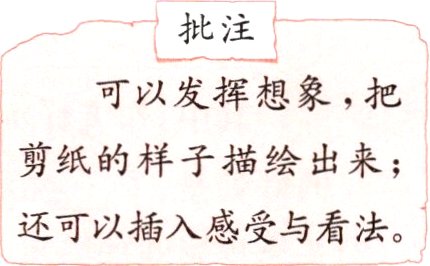 批注
可以发挥想象，把
剪纸的样子描绘出来；
还可以插入感受与看法。